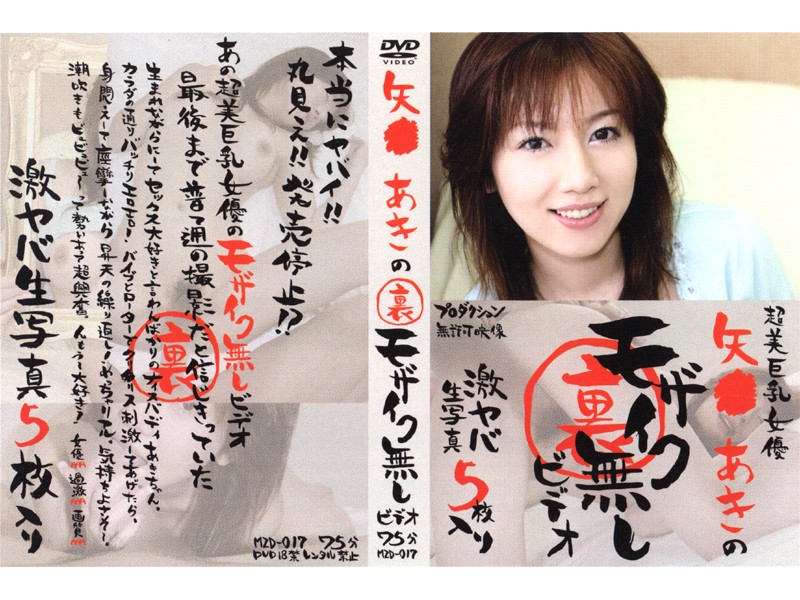 本当にヤバイ!!
丸見え!!発売停止!?
あの超美巨乳女優のモザイク無しビデオ
最後まで普通の撮影だと信じきっていた
生まれながらにしてセックス大好きと言わんばかりのナイスバディあきちゃん。
カラダの通りバッチリエロエロ!バイブとローターでクリトリス刺激してあげたら、
身悶えして痙攣しながら昇天の繰り返し!めっちゃリアル、気持ちよさそ〜。
潮吹きもビュビュビュ〜って勢いあって超興奮、んもう〜大好き!
女優 過激 画質
裏
激ヤバ生写真5枚入り
MZD-017 75分
DVD 18禁 レンタル禁止
DVD
VIDEO
矢● あきの
裏
モザイク無し
ビデオ
75分
MZD-017
超美巨乳女優
矢● あきの
裏
モザイク無し
ビデオ
プロダクション
無許可映像
激ヤバ
生写真
5枚入り